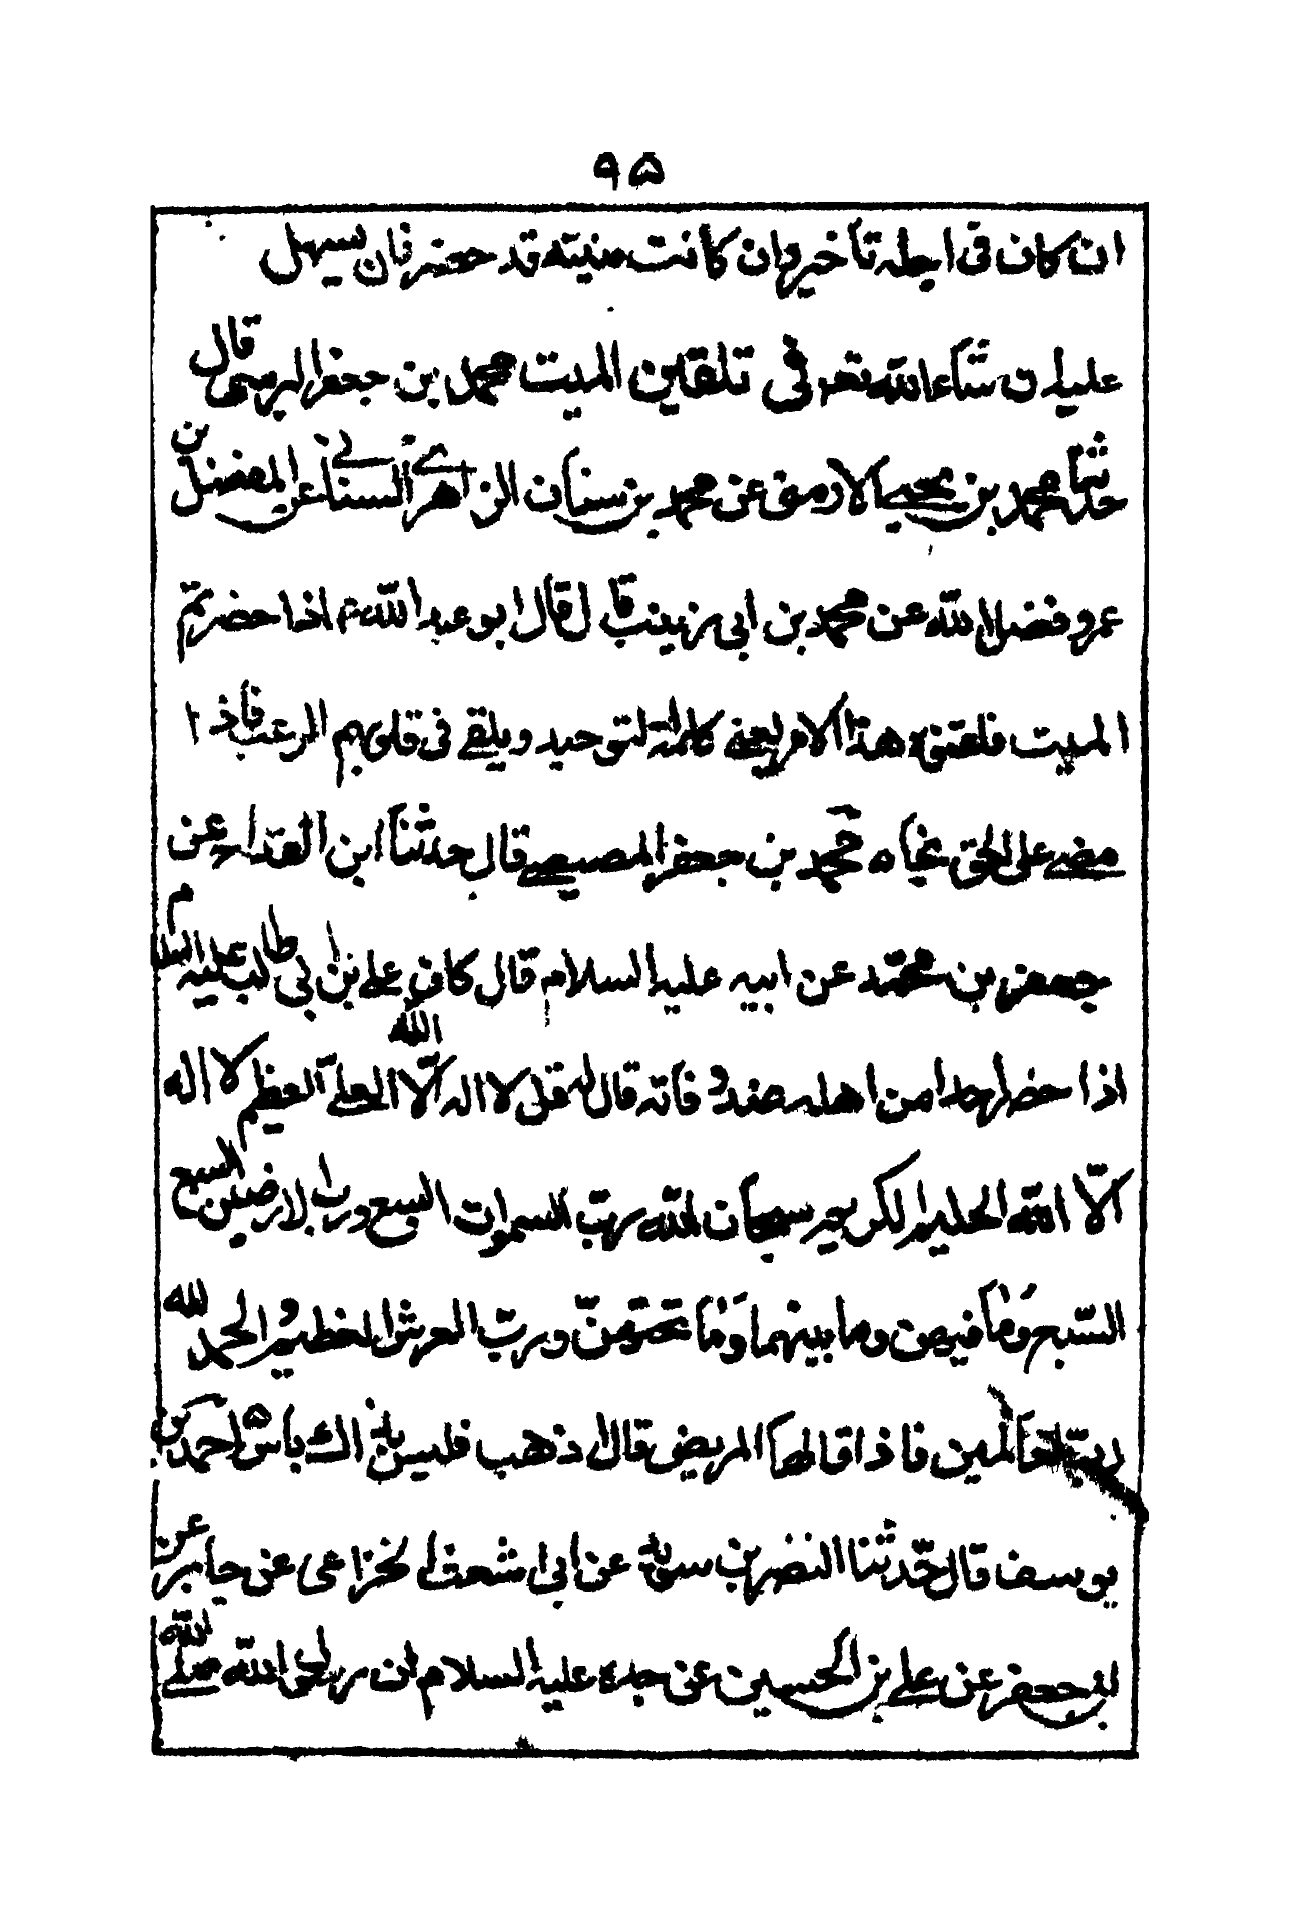 ٩٥
ان كان فى اجله تأخير وان كانت منيته قد حضر فان سيهل
عليه ن شاء الله تعو فى تلقين الميت محمد بن جعفر البرسى قال
حدثنا محمد بن يحيى الارمنى عن محمد بن سنان الزاهرى السنانى عن المفضل بن
عمرو فضل الله عن محمد بن ابى زينب قال قال ابو عبد الله ع اذا حضرتم
الميت فلقنوه هذا الامر يعنى كلمة التوحيد ويلقى فى قلوبهم الرعب فاذا
مضى على الحق نجاه محمد بن جعفر المصيصى قال حدثنا ابن القداح عن
جعفر بن محمد عن ابيه عليه السلام قال كان على بن ابى طالب عليه السلم
اذا حضر احدا من اهله عنده وفاته قال له قل لا اله الا الله العلى العظيم لا اله
الا الله الحليم الكريم سبحان الله رب السموات السبع ورب الارضين السبع
السبع وما فيهن وما بينهما وما تحتهن ورب العرش العظيم والحمد لله
رب العالمين فاذا قالها المريض قال اذهب فليس عليك باس احمد بن
يوسف قال حدثنا النضر بن سويد عن ابى شعف الخزاعى عن جابر عن
ابى جعفر عن على بن الحسين عن جده عليه السلام ان رسول الله صلى الله